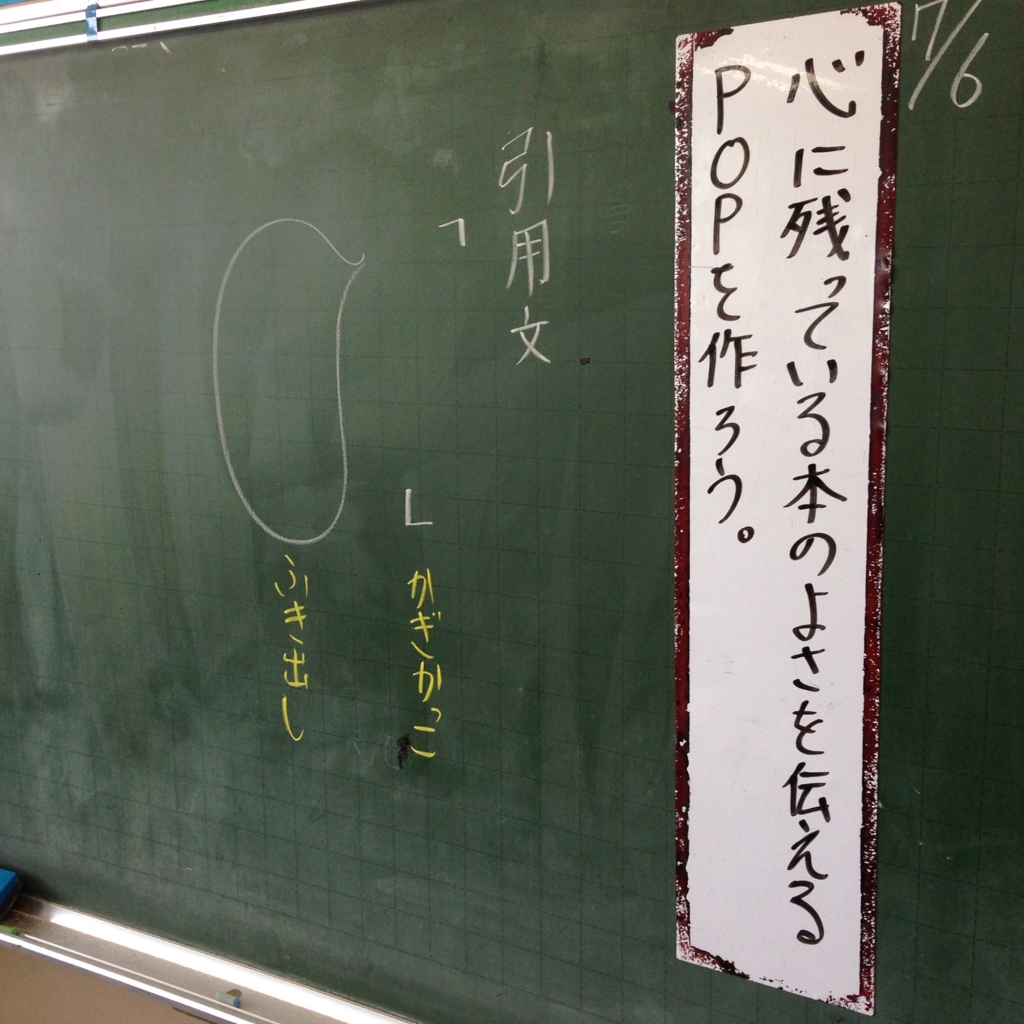 7/6
心に残っている本のよさを伝える
POPを作ろう。
引用文
「 」かぎかっこ
ふき出し